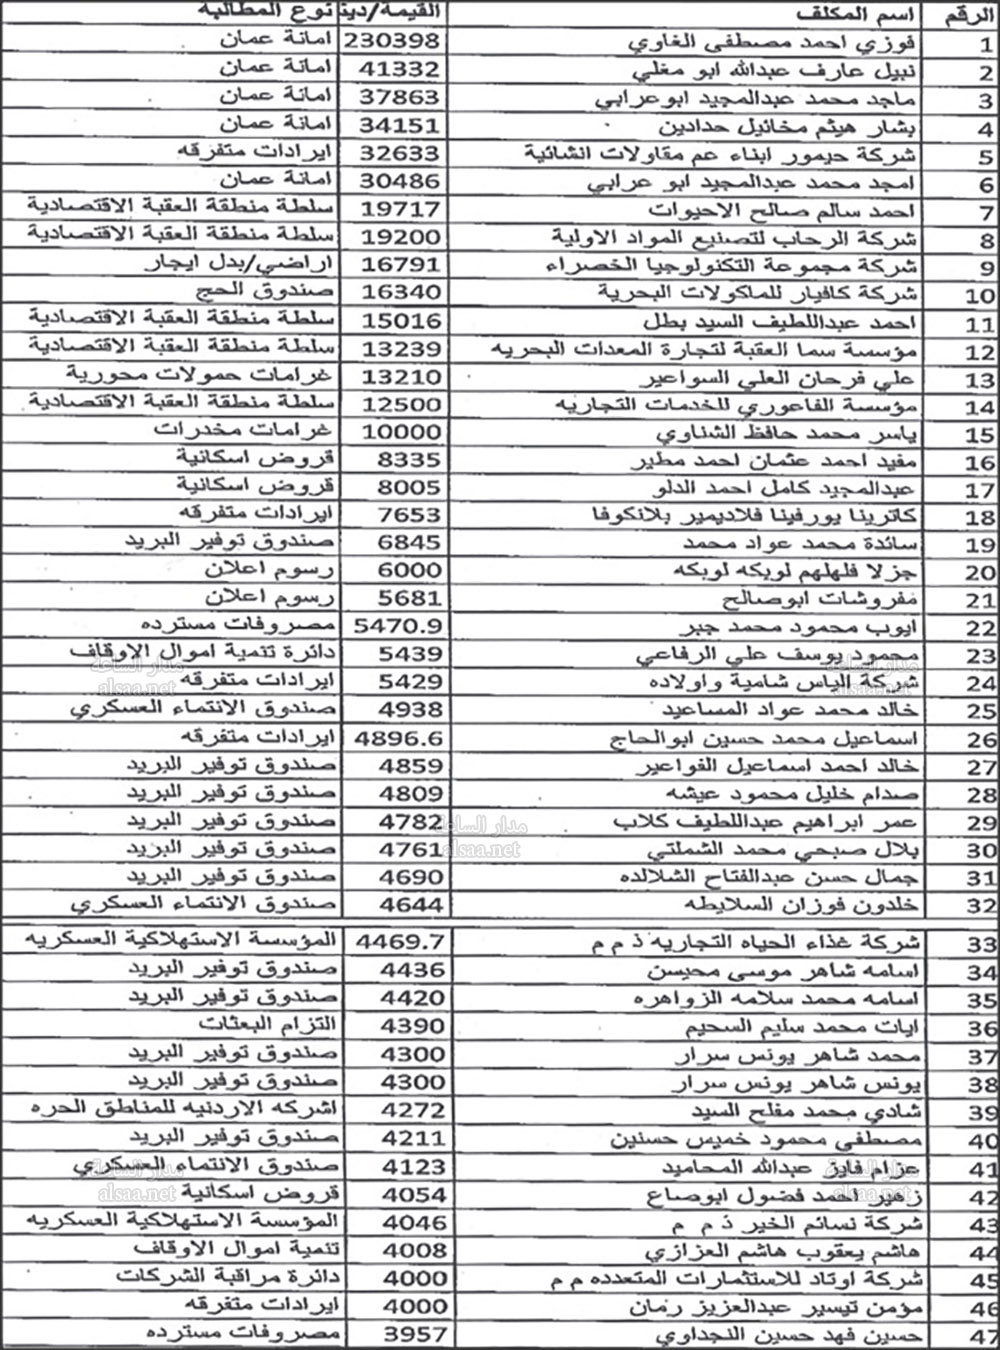 الرقم اسم المكلف القيمة/دينا نوع المطالبه
1 فوزي احمد مصطفى الغاوي 230398 امانة عمان
2 نبيل عارف عبدالله ابو مغلي 41332 امانة عمان
3 ماجد محمد عبدالمجيد ابوعرابي 37863 امانة عمان
4 بشار هيثم مخائيل حدادين 34151 امانة عمان
5 شركة حيمور ابناء عم مقاولات انشائية 32633 ايرادات متفرقه
6 امجد محمد عبدالمجيد ابو عرابي 30486 امانة عمان
7 احمد سالم صالح الاحيوات 19717 سلطة منطقة العقبة الاقتصادية
8 شركة الرحاب لتصنيع المواد الاولية 19200 سلطة منطقة العقبة الاقتصادية
9 شركة مجموعة التكنولوجيا الخضراء 16791 اراضي/بدل ايجار
10 شركة كافيار للماكولات البحرية 16340 صندوق الحج
11 احمد عبداللطيف السيد بطل 15016 سلطة منطقة العقبة الاقتصادية
12 مؤسسة سما العقبة لتجارة المعدات البحريه 13239 سلطة منطقة العقبة الاقتصادية
13 علي فرحان العلي السواعير 13210 غرامات حمولات محورية
14 مؤسسة الفاعوري للخدمات التجاريه 12500 سلطة منطقة العقبة الاقتصادية
15 ياسر محمد حافظ الشناوي 10000 غرامات مخدرات
16 مفيد احمد عثمان احمد مطير 8335 قروض اسكانية
17 عبدالمجيد كامل احمد الدلو 8005 قروض اسكانية
18 كاترينا يورفينا فلاديمير بلانكوفا 7653 ايرادات متفرقه
19 سائدة محمد عواد محمد 6845 صندوق توفير البريد
20 جزلا فلهلهم لوبكه لوبكه 6000 رسوم اعلان
21 مفروشات ابوصالح 5681 رسوم اعلان
22 ايوب محمود محمد جبر 5470.9 مصروفات مسترده
23 محمود يوسف علي الرفاعي 5439 دائرة تنمية اموال الاوقاف
24 شركة الياس شامية واولاده 5429 ايرادات متفرقه
25 خالد محمد عواد المساعيد 4938 صندوق الائتماء العسكري
26 اسماعيل محمد حسين ابوالحاج 4896.6 ايرادات متفرقه
27 خالد احمد اسماعيل الفواعير 4859 صندوق توفير البريد
28 صدام خليل محمود عيشه 4809 صندوق توفير البريد
29 عمر ابراهيم عبداللطيف كلاب 4782 صندوق توفير البريد
30 بلال صبحي محمد الشملتي 4761 صندوق توفير البريد
31 جمال حسن عبدالفتاح الشلالده 4690 صندوق توفير البريد
32 خلدون فوزان السلايطه 4644 صندوق الائتماء العسكري
33 شركة غذاء الحياه التجاريه ذ م م 4469.7 المؤسسة الاستهلاكية العسكريه
34 اسامه شاهر موسى محيسن 4436 صندوق توفير البريد
35 اسامه محمد سلامه الزواهره 4420 صندوق توفير البريد
36 ايات محمد سليم السحيم 4390 التزام البعثات
37 محمد شاهر يونس سرار 4300 صندوق توفير البريد
38 يونس شاهر يونس سرار 4300 صندوق توفير البريد
39 شادي محمد مفلح السيد 4272 اشركه الاردنيه للمناطق الحره
40 مصطفى محمود خميس حسنين 4211 صندوق توفير البريد
41 عزام فايز عبدالله المحاميد 4123 صندوق الائتماء العسكري
42 زهير احمد فضول ابوصاع 4054 قروض اسكانية
43 شركة نسائم الخير ذ م م 4046 المؤسسة الاستهلاكية العسكريه
44 هاشم يعقوب هاشم العزازي 4008 تنمية اموال الاوقاف
45 شركة اوتاد للاستثمارات المتعدده م م 4000 دائرة مراقبة الشركات
46 مؤمن تيسير عبدالعزيز رمان 4000 ايرادات متفرقه
47 حسين فهد حسين النجداوي 3957 مصروفات مسترده
مدار الساعة
alsaa.net
مدار الساعة
alsaa.net
مدار الساعة
alsaa.net
مدار الساعة
alsaa.net
مدار الساعة
alsaa.net